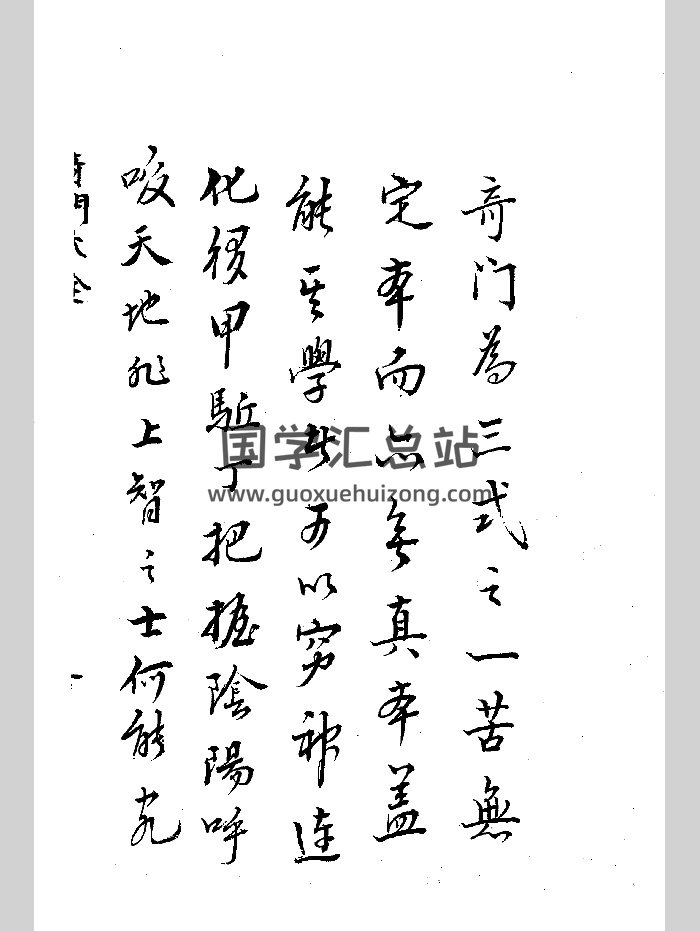 奇门為三式之一苦無
定本而亦無真本蓋
能其學者可以窮神達
化役甲駈丁把握陰陽呼
吸天地非上智之士何能究
奇門大全
一
国学汇总站
www.guoxuehuizong.com